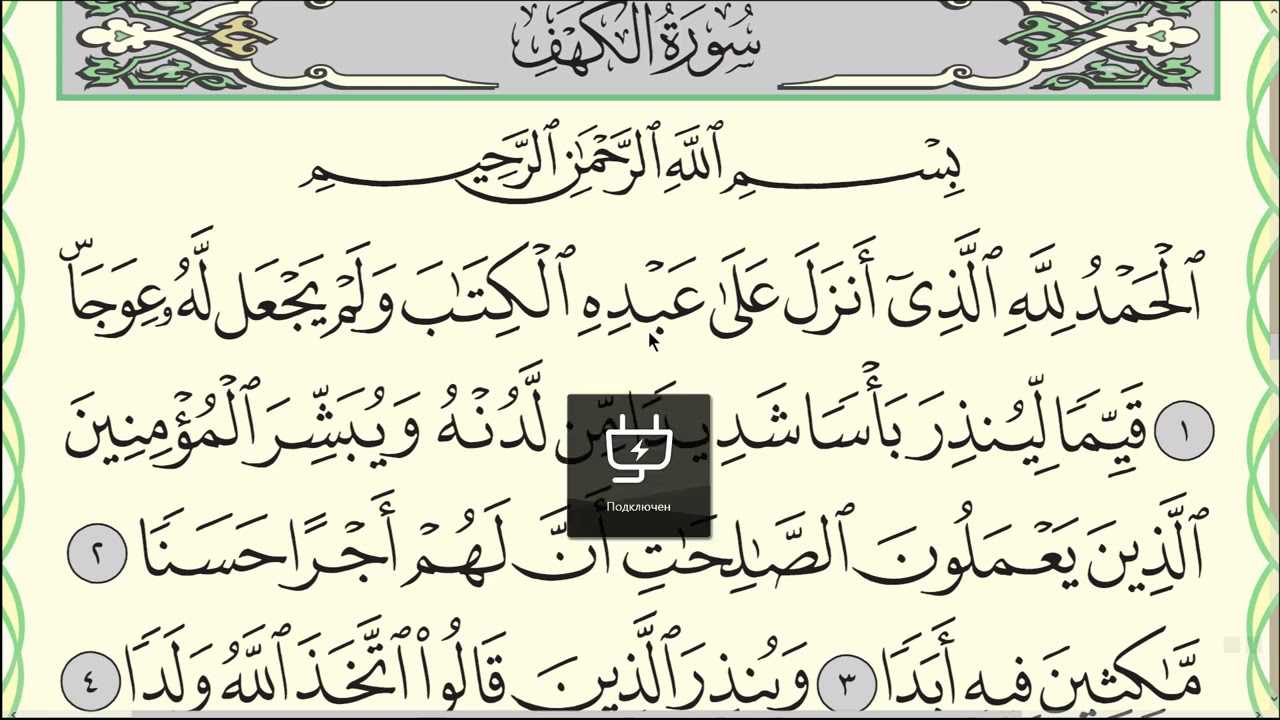 سُورَةُ الْكَهْفِ
بِسْمِ ٱللَّهِ ٱلرَّحْمَٰنِ ٱلرَّحِيمِ
ٱلْحَمْدُ لِلَّهِ ٱلَّذِىٓ أَنزَلَ عَلَىٰ عَبْدِهِ ٱلْكِتَٰبَ وَلَمْ يَجْعَل لَّهُۥ عِوَجَاۜ
١ قَيِّمًا لِّيُنذِرَ بَأْسًا شَدِيدًا مِّن لَّدُنْهُ وَيُبَشِّرَ ٱلْمُؤْمِنِينَ
ٱلَّذِينَ يَعْمَلُونَ ٱلصَّٰلِحَٰتِ أَنَّ لَهُمْ أَجْرًا حَسَنًا ٢
مَّٰكِثِينَ فِيهِ أَبَدًا ٣ وَيُنذِرَ ٱلَّذِينَ قَالُوا۟ ٱتَّخَذَ ٱللَّهُ وَلَدًا ٤
Подключен